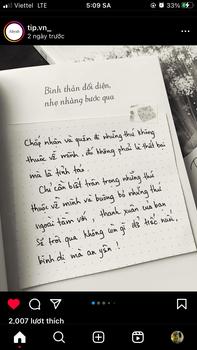 Viettel LTE
5:09 SA
33%
tip.vn_
2 ngày trước
Bình thản đối diện,
nhẹ nhàng bước qua
Chấp nhận và quên đi những thứ không
thuộc về mình, đó không phải là thất bại
mà là tỉnh táo.
Chỉ cần biết trân trọng những thứ
thuộc về mình và buông bỏ những thứ
ngoài tầm với, thanh xuân của bạn
sẽ trôi qua không còn gì để tiếc nuối,
bình dị mà an yên!
2.007 lượt thích